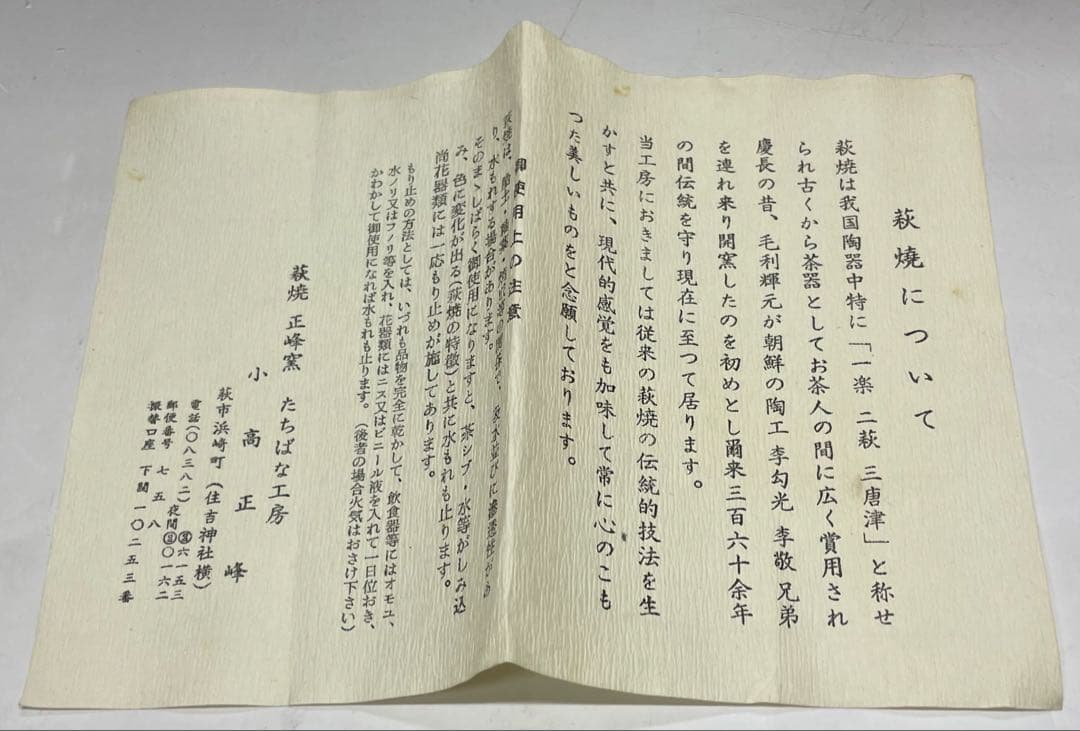 萩焼について
萩焼は我国陶器中特に「一楽 二萩 三唐津」と称せ
られ古くから茶器としてお茶人の間に広く賞用され
慶長の昔、毛利輝元が朝鮮の陶工 李勾光 李敬 兄弟
を連れ来り開窯したのを初めとし爾来三百六十余年
の間伝統を守り現在に至つて居ります。
当工房におきましては従来の萩焼の伝統的技法を生
かすと共に、現代的感覚をも加味して常に心のこも
つた美しいものをと念願しております。
御使用上の注意
萩焼は、
り、水もれする場合があります。
そのまゝしばらく御使用になりますと、茶シブ・水等がしみ込
み、色に変化が出る(萩焼の特徴)と共に水もれも止ります。
尚花器類には一応もり止めが施してあります。
もり止めの方法としては、いづれも品物を完全に乾かして、飲食器等にはオモユ、
水ノリ又はフノリ等を入れ、花器類にはニス又はビニール液を入れて一日位おき、
かわかして御使用になれば水もれも止ります。(後者の場合火気はおさけ下さい)
萩焼 正峰窯 たちばな工房
小高正峰
萩市浜崎町(住吉神社横)
電話(〇八三八二)②六一五三
夜間②〇一六二
郵便番号 七五八
振替口座 下関一〇二五三番